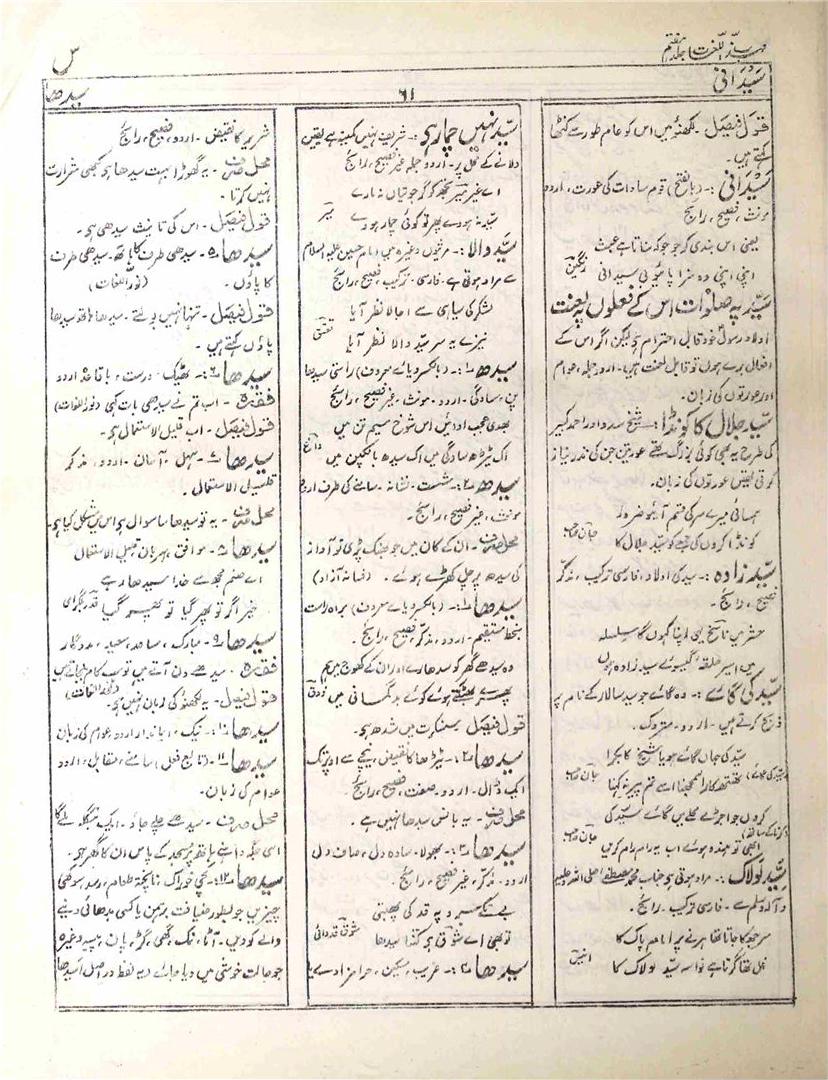 مہذب اللغات جلد ہفتم
س
سَیّدانی
۶۱
سیدھا
قول فیصل۔ لکھنؤ میں اس کو عام طور سے کنٹھا
کہتے ہیں۔
سَیِّدانی :۔ (بالفتح) قوم سادات کی عورت، اردو
مونث، فصیح، رائج
یعنی اس بندی کو جو جو کہ ستاتا ہے عبث
اپنی اپنی وہ سزا پائیو بی سیدانی
رنگینؔ
سیّد پہ صلوات اس کے فعلوں پہ لعنت
اولاد رسول خود قابل احترام ہو لیکن اگر اس کے
افعال برے ہوں تو قابل لعنت ہیں۔ اردو جملہ، عوام
اور عورتوں کی زبان۔
سیّد جلال کا کونڈا :۔ شیخ سدو اور احمد کبیر
کی طرح یہ بھی کوئی بزرگ تھے عورتیں جن کی نذر نیاز
کرتی تھیں عورتوں کی زبان۔
ہمسائی میرے سر کی قسم آئیو ضرور
کونڈا کروں گی میں سیّد جلال کا
جان صاحب
سیّد زادہ :۔ سید کی اولاد، فارسی ترکیب، مذکر
فصیح، رائج۔
حشر میں ناسخ یہی اپنا کہوں گا سلسلہ
میں اسیر حلقۂ گیسوئے سید زادہ ہوں
سیّد کی گائے :۔ وہ گائے جو سید سالار کے نام پر
ذبح کرتے ہیں۔ اردو۔ متروک۔
سیّد کی جاں گائے ہو یا شیخ کا بکرا
جان صاحب
کروں جو اجڑے محلے میں گائے سیّد کی
ابھی تو ہندو ہوئے اب یہ رام رام کریں
جان صاحب
سیّدِ لولاک :۔ مراد ہوتی ہو جناب محمد مصطفےٰ صلی اللہ علیہ
وآلہ وسلم سے۔ فارسی ترکیب۔ رائج۔
نواسہ سیّد لولاک کا
انیسؔ
سیّد نہیں چمار ہی :۔ شریف نہیں کمینہ ہے یقین
دلانے کے محل پر۔ اردو جملہ غیر فصیح، رائج
اے غیر میر تجھ کو گر جوتیاں نہ مارے
سیّد نہ ہووے پھر تو کوئی چمار ہووے
میرؔ
سیّد والا :۔ مرثیوں وغیرہ میں امام حسین علیہ السلام
سے مراد ہوتی ہے۔ فارسی۔ ترکیب، فصیح، رائج
لشکر کی سیاہی سے اجالا نظر آیا
نیزے پہ سر سیّد والا نظر آیا
تعشقؔ
سیدھ :۔۱ (بالکسر و یائے معروف) راستی سیدھا
پن، سادگی۔ اردو۔ مونث، غیر فصیح، رائج
عجب ادائیں اس شوخ سیم تن میں
اک ٹیڑھ سادگی میں اک سیدھ بانکپن میں
داغؔ
سیدھ :۔۲ شست، نشانہ۔ سامنے کی طرف اردو
مونث، غیر فصیح، رائج۔
محل صرف۔ ان کے کان میں جو بھنک پڑی تو آواز
کی سیدھ پر چل کھڑے ہوئے۔ (فسانۂ آزاد)
سیدھا :۔۱ (بالکسر و یائے معروف) براہ راست
بخط مستقیم۔ اردو، مذکر، فصیح، رائج۔
وہ سیدھے گھر کو سدھارے اور ان کے کھوج میں ہم
پھرے بھٹکتے ہوئے کوئے بدگمانی میں
ذوقؔ
قول فیصل سنسکرت میں شدھ ہو۔
سیدھا :۔۲ ٹیڑھا کا نقیض، نیچے سے اوپر تک
ایک ڈال۔ اردو۔ صفت، فصیح، رائج۔
محل صرف۔ یہ بانس سیدھا نہیں ہے۔
سیدھا :۔۳ بھولا، سادہ دل، صاف دل
اردو۔ مذکر، غیر فصیح، رائج۔
قد کی پھبتی
تو بھی اے شوق ہو کتنا سیدھا
شوق قدوائی
سیدھا :۔۴ غریب، مسکین، حرامزادے یا
شریر کا نقیض۔ اردو، فصیح، رائج
محل صرف۔ یہ گھوڑا بہت سیدھا ہو کبھی شرارت
نہیں کرتا۔
قول فیصل۔ اس کی تانیث سیدھی ہو۔
سیدھا :۔۵ سیدھی طرف کا ہاتھ۔ سیدھی طرف
کا پاؤں۔ (نور اللغات)
قول فیصل۔ تنہا نہیں بولتے۔ سیدھا ہاتھ سیدھا
پاؤں کہتے ہیں۔
سیدھا :۔۶ ٹھیک۔ درست، باقاعدہ اردو
فقرہ۔ اب تم نے سیدھی بات کہی (نور اللغات)
قول فیصل۔ اب قلیل الاستعمال ہو۔
سیدھا :۔۷ سہل، آسان۔ اردو، مذکر
قلیل الاستعمال۔
محل صرف۔ یہ تو سیدھا سا سوال ہو اس میں مشکل کیا ہو۔
سیدھا :۔۸ موافق، مہربان قلیل الاستعمال
اے صنم مجھ سے خدا سیدھا رہے
خیر اگر تو پھر گیا تو پھر گیا
قدر بلگرامی
سیدھا :۔۹ مبارک، ساعد، سعید، مددگار
فقرہ۔ سیدھے دن آتے ہیں تو سب کام بن جاتے ہیں
(نور اللغات)
قول فیصل۔ یہ لکھنؤ کی زبان نہیں ہو۔
سیدھا :۔۱۰ نیک، ایماندار اردو عوام کی زبان
سیدھا :۔۱۱ (تابع فعل) سامنے، مقابل، اردو
عوام کی زبان۔
محل صرف۔ سیدھے چلے جاؤ۔ ایک بنگلہ ملے گا
اسی جگہ داہنے ہاتھ پر مسجد کے پاس ان کا گھر ہو۔
سیدھا :۔۱۲ کچی خوراک ناپختہ طعام، رسد سوکھی
چیزیں جو بطور ضیافت برہمن یا کسی مدھائی دینے
والے کو دیں۔ آٹا، نمک، گھی، گڑ، پان، پیسہ وغیرہ
جو حالت خوشی میں دیا جائے یہ لفظ در اصل سیدھا